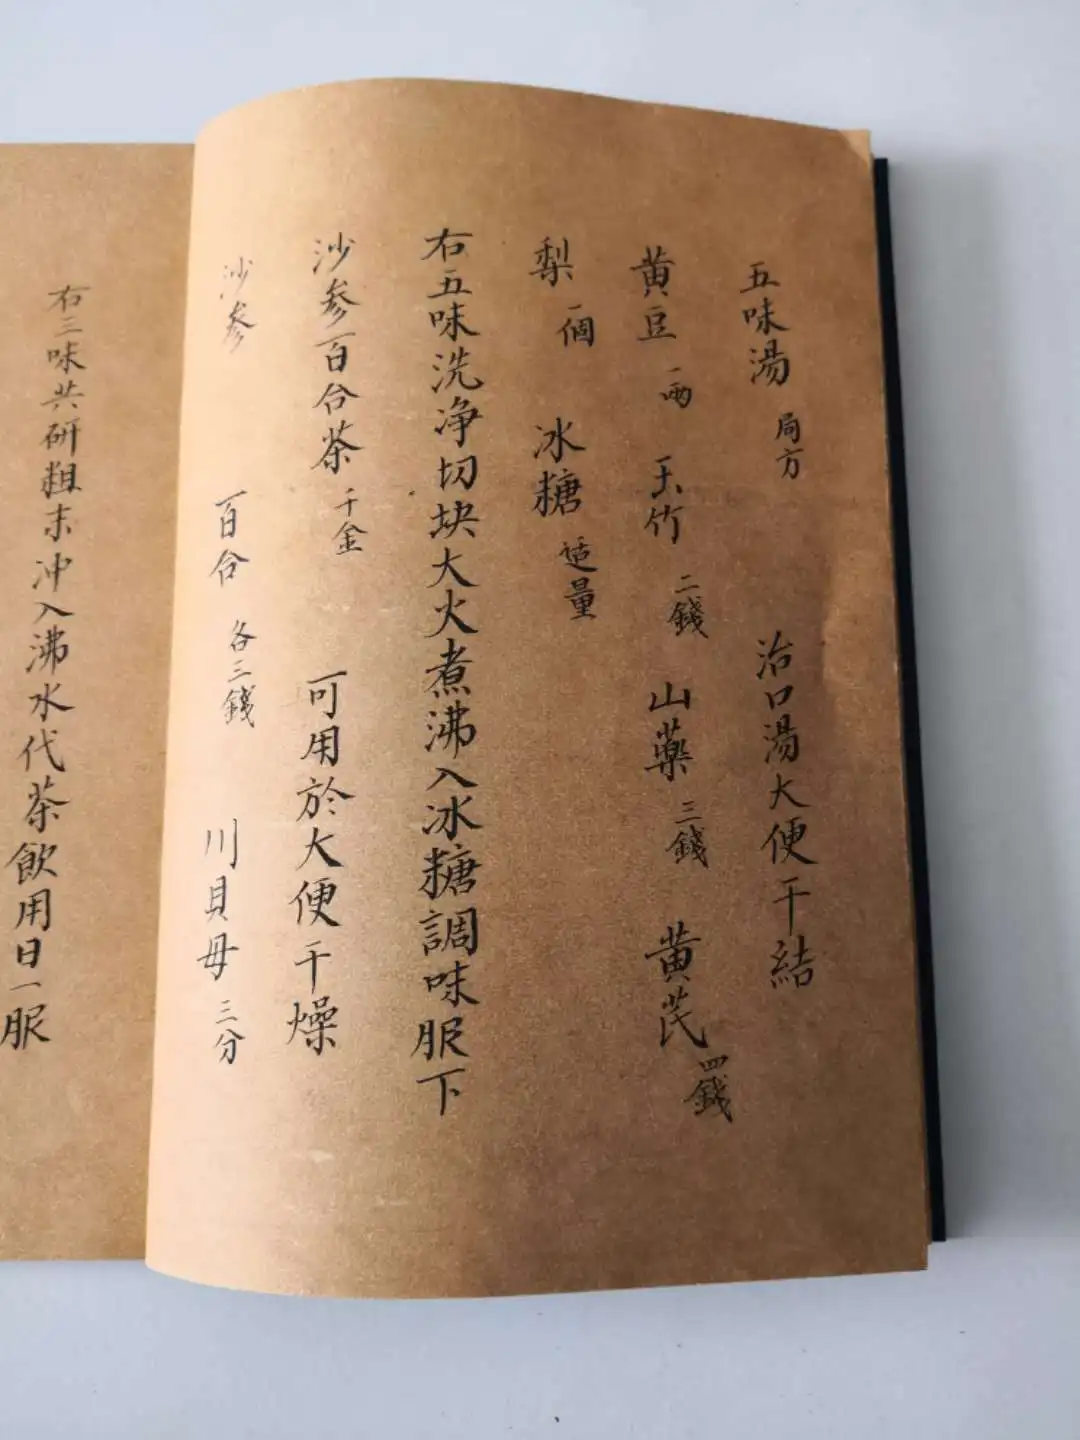 五味湯 局方 治口湯大便干結
黄豆 一兩 玉竹 二錢 山藥 三錢 黄芪 四錢
梨 一個 冰糖 适量
右五味洗净切块大火煮沸入冰糖調味服下
沙参百合茶 千金 可用於大便干燥
沙参 百合 各三錢 川貝母 三分
右三味共研粗末冲入沸水代茶飲用日一服